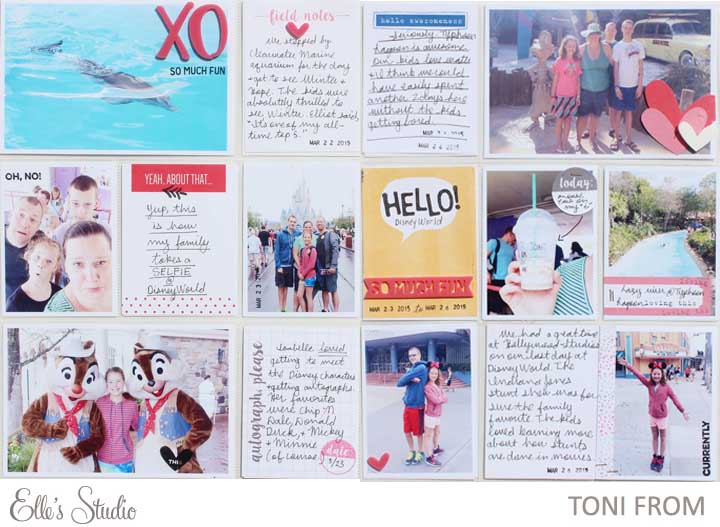 XO
SO MUCH FUN
field notes
We stopped by
Clearwater Marine
aquarium for the day
+ get to see Winter +
Hope. The kids were
absolutely thrilled to
see Winter. Elliot said,
"It's one of my all-
time top 5."
MAR 22 2015
hello awesomeness
Seriously, Typhoon
Lagoon is awesome.
Our kids love water
+ I think we could
have easily spent
another 2 days here
without the kids
getting bored.
2015
OH, NO!
YEAH, ABOUT THAT...
Yup, this
is how
my family
takes a
SELFIE
@
Disney World
MAR 23 2015
HELLO!
Disney World
SO MUCH FUN
MAR 23 2015 to MAR 26 2015
today:
lazy river @ Typhoon
Lagoon loving this
THIS
autograph, please
Isabelle loved
getting to meet
the Disney characters
+ getting autographs.
Her favorites
were Chip 'N
Dale, Donald
Duck, + Mickey
+ Minnie
(of course)
date:
3/23
We had a great time
at Hollywood Studios
on our last day at
Disney World. The
Indiana Jones
stunt show was for
sure the family
favorite. The kids
loved learning more
about how stunts
are done in movies.
MAR 26 2015
CURRENTLY
Elle's Studio
TONI FROM